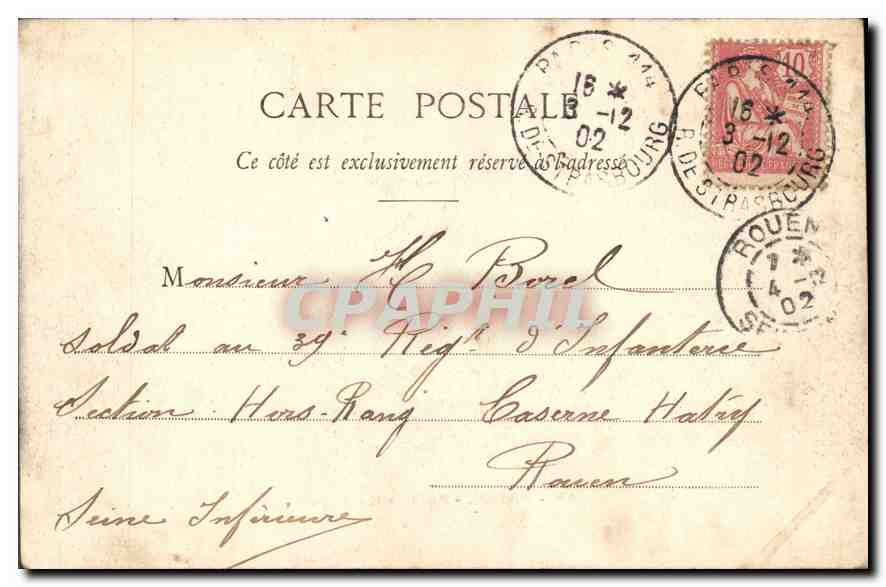 CARTE POSTALE
Ce côté est exclusivement réservé à l'adresse
PARIS 114
16 *
3 -12
02
R. DE STRASBOURG
PARIS 114
16 *
3 -12
02
R. DE STRASBOURG
10
ROUEN
1 *
4 -12
02
Monsieur H Borel
Soldat au 39e Régt d'Infanterie
Section Hors-Rang Caserne Hatry
Rouen
Seine Inférieure
CPAPHIL